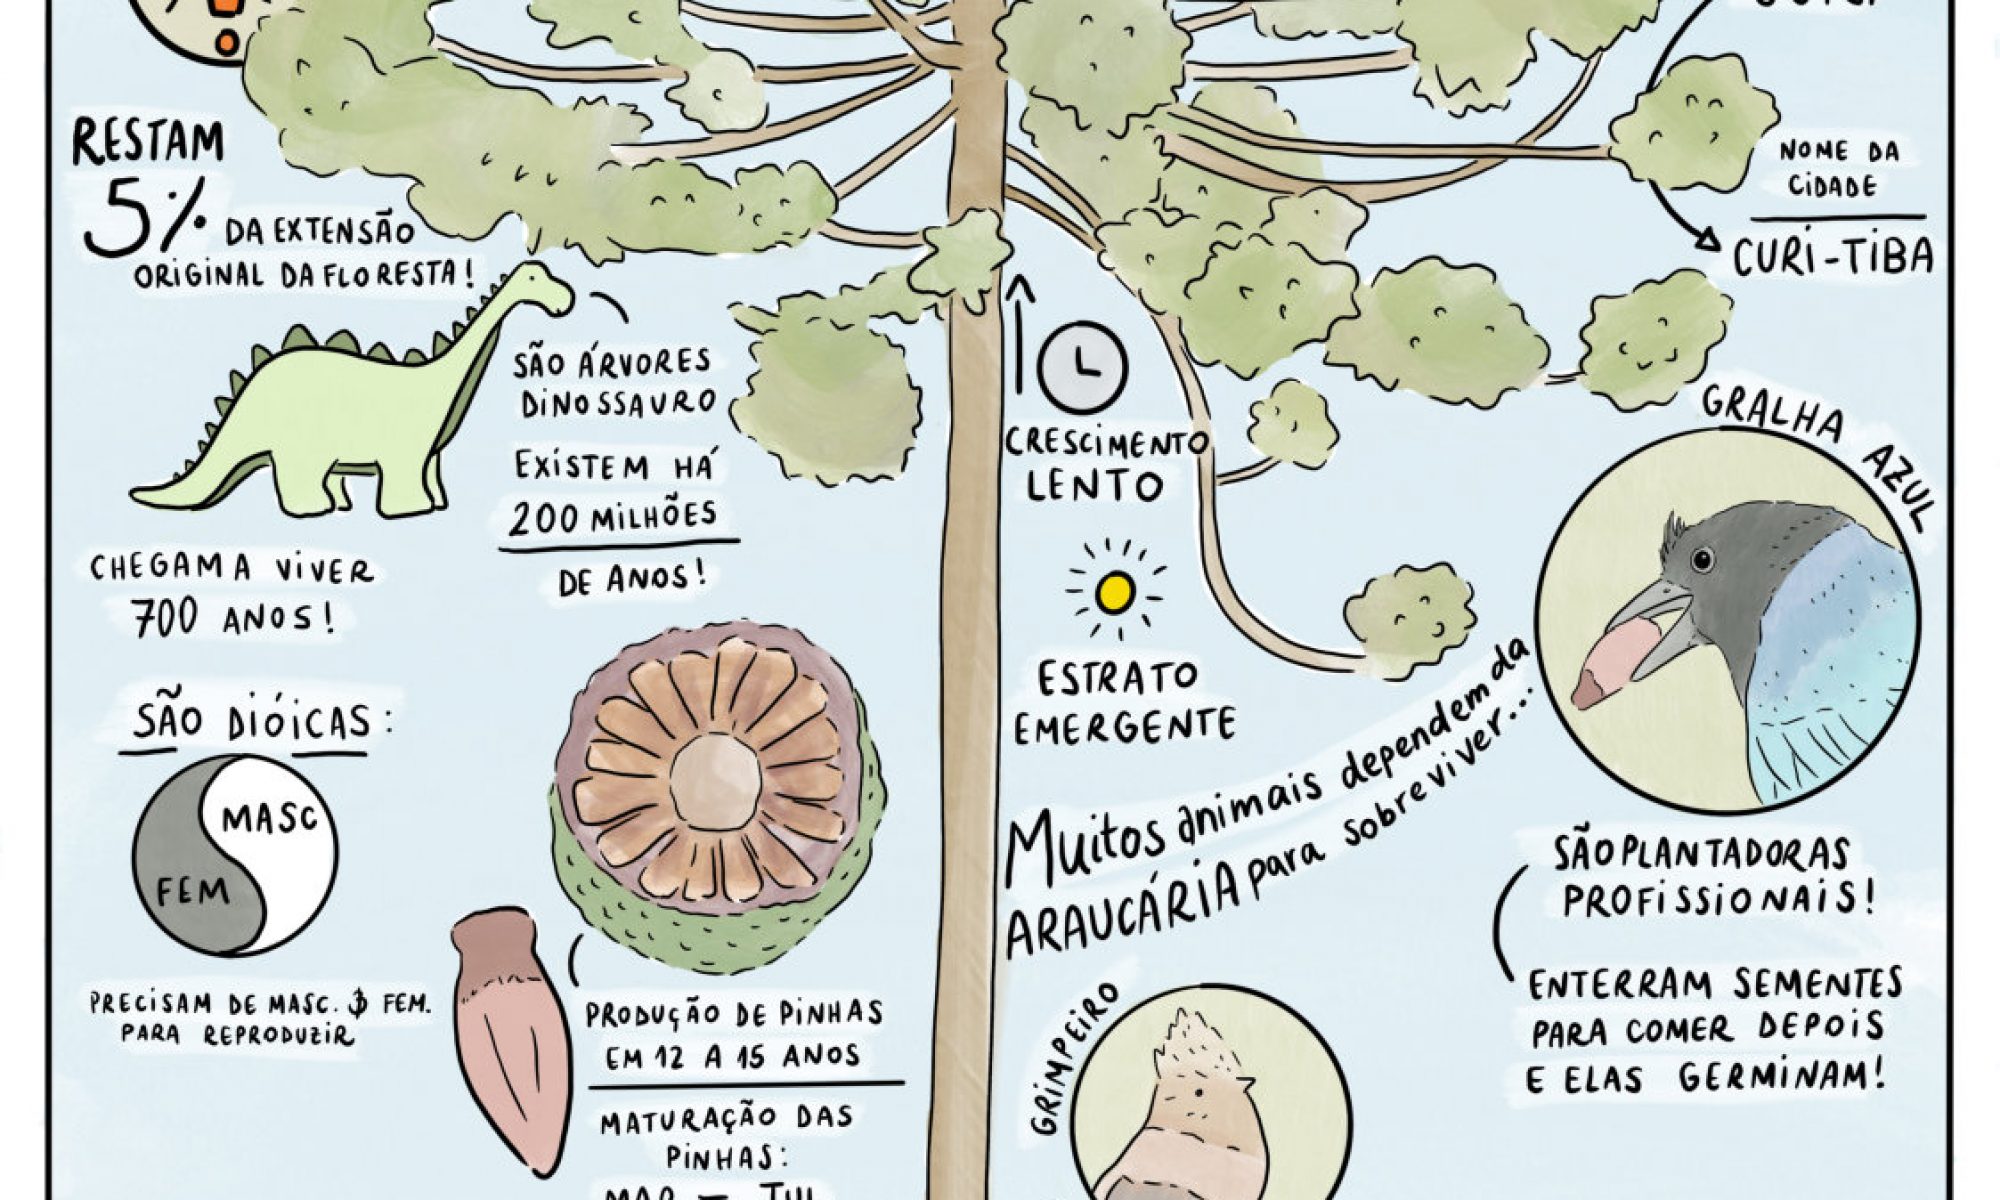 RESTAM
5% DA EXTENSÃO
ORIGINAL DA FLORESTA!
SÃO ÁRVORES
DINOSSAURO
EXISTEM HÁ
200 MILHÕES
DE ANOS!
CHEGAM A VIVER
700 ANOS!
SÃO DIÓICAS:
MASC
FEM
PRECISAM DE MASC. & FEM.
PARA REPRODUZIR
PRODUÇÃO DE PINHAS
EM 12 A 15 ANOS
MATURAÇÃO DAS
PINHAS:
MAR – JUL
NOME DA
CIDADE
CURI-TIBA
CRESCIMENTO
LENTO
ESTRATO
EMERGENTE
GRALHA AZUL
Muitos animais dependem da
ARAUCÁRIA para sobreviver...
SÃO PLANTADORAS
PROFISSIONAIS!
ENTERRAM SEMENTES
PARA COMER DEPOIS
E ELAS GERMINAM!
GRIMPEIRO